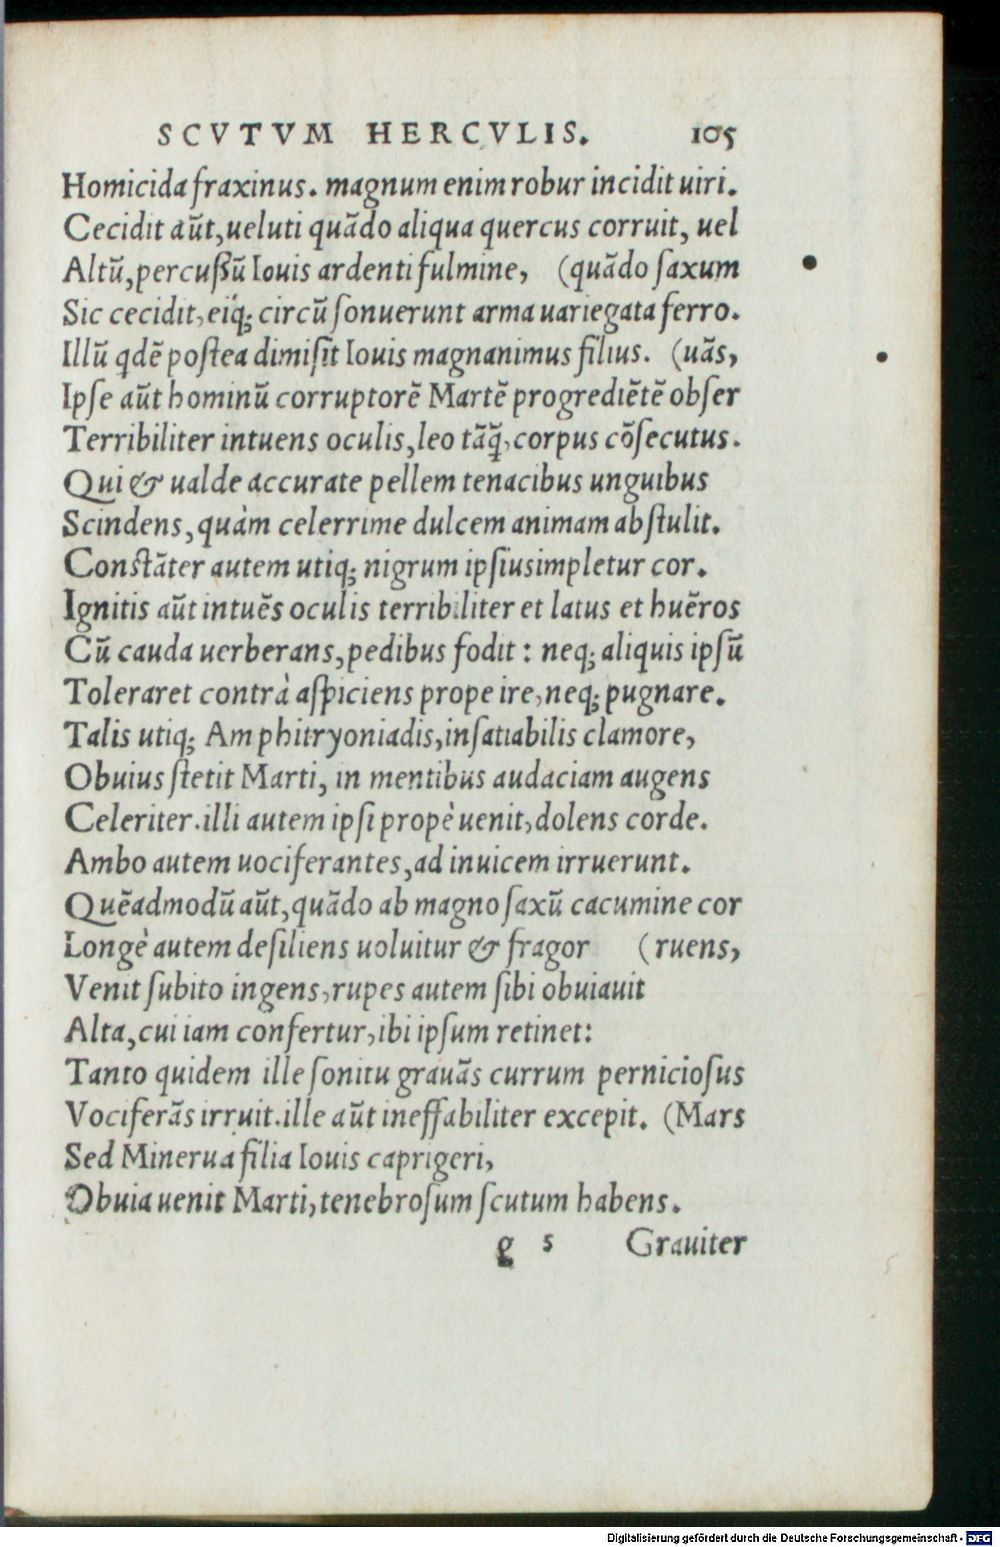 SCVTVM HERCVLIS. 105
Homicida fraxinus. magnum enim robur incidit uiri.
Cecidit aũt, ueluti quãdo aliqua quercus corruit, uel
Altũ, percussũ Iouis ardenti fulmine, (quãdo saxum
Sic cecidit, eiq́; circũ sonuerunt arma uariegata ferro.
Illũ qdẽ postea dimisit Iouis magnanimus filius. (uãs,
Ipse aũt hominũ corruptorẽ Martẽ progrediẽtẽ obser
Terribiliter intuens oculis, leo tãq̃, corpus cõsecutus.
Qui & ualde accurate pellem tenacibus unguibus
Scindens, quàm celerrime dulcem animam abstulit.
Constãter autem utiq; nigrum ipsius impletur cor.
Ignitis aũt intuẽs oculis terribiliter et latus et huẽros
Cũ cauda uerberans, pedibus fodit : neq; aliquis ipsũ
Toleraret contrà aspiciens prope ire, neq; pugnare.
Talis utiq; Amphitryoniadis, insatiabilis clamore,
Obuius stetit Marti, in mentibus audaciam augens
Celeriter. illi autem ipsi propè uenit, dolens corde.
Ambo autem uociferantes, ad inuicem irruerunt.
Quẽadmodũ aũt, quãdo ab magno saxũ cacumine cor
Longè autem desiliens uoluitur & fragor (ruens,
Venit subito ingens, rupes autem sibi obuiauit
Alta, cui iam confertur, ibi ipsum retinet:
Tanto quidem ille sonitu grauãs currum perniciosus
Vociferãs irruit. ille aũt ineffabiliter excepit. (Mars
Sed Minerua filia Iouis caprigeri,
Obuia uenit Marti, tenebrosum scutum habens.
g 5 Grauiter
Digitalisierung gefördert durch die Deutsche Forschungsgemeinschaft - DFG